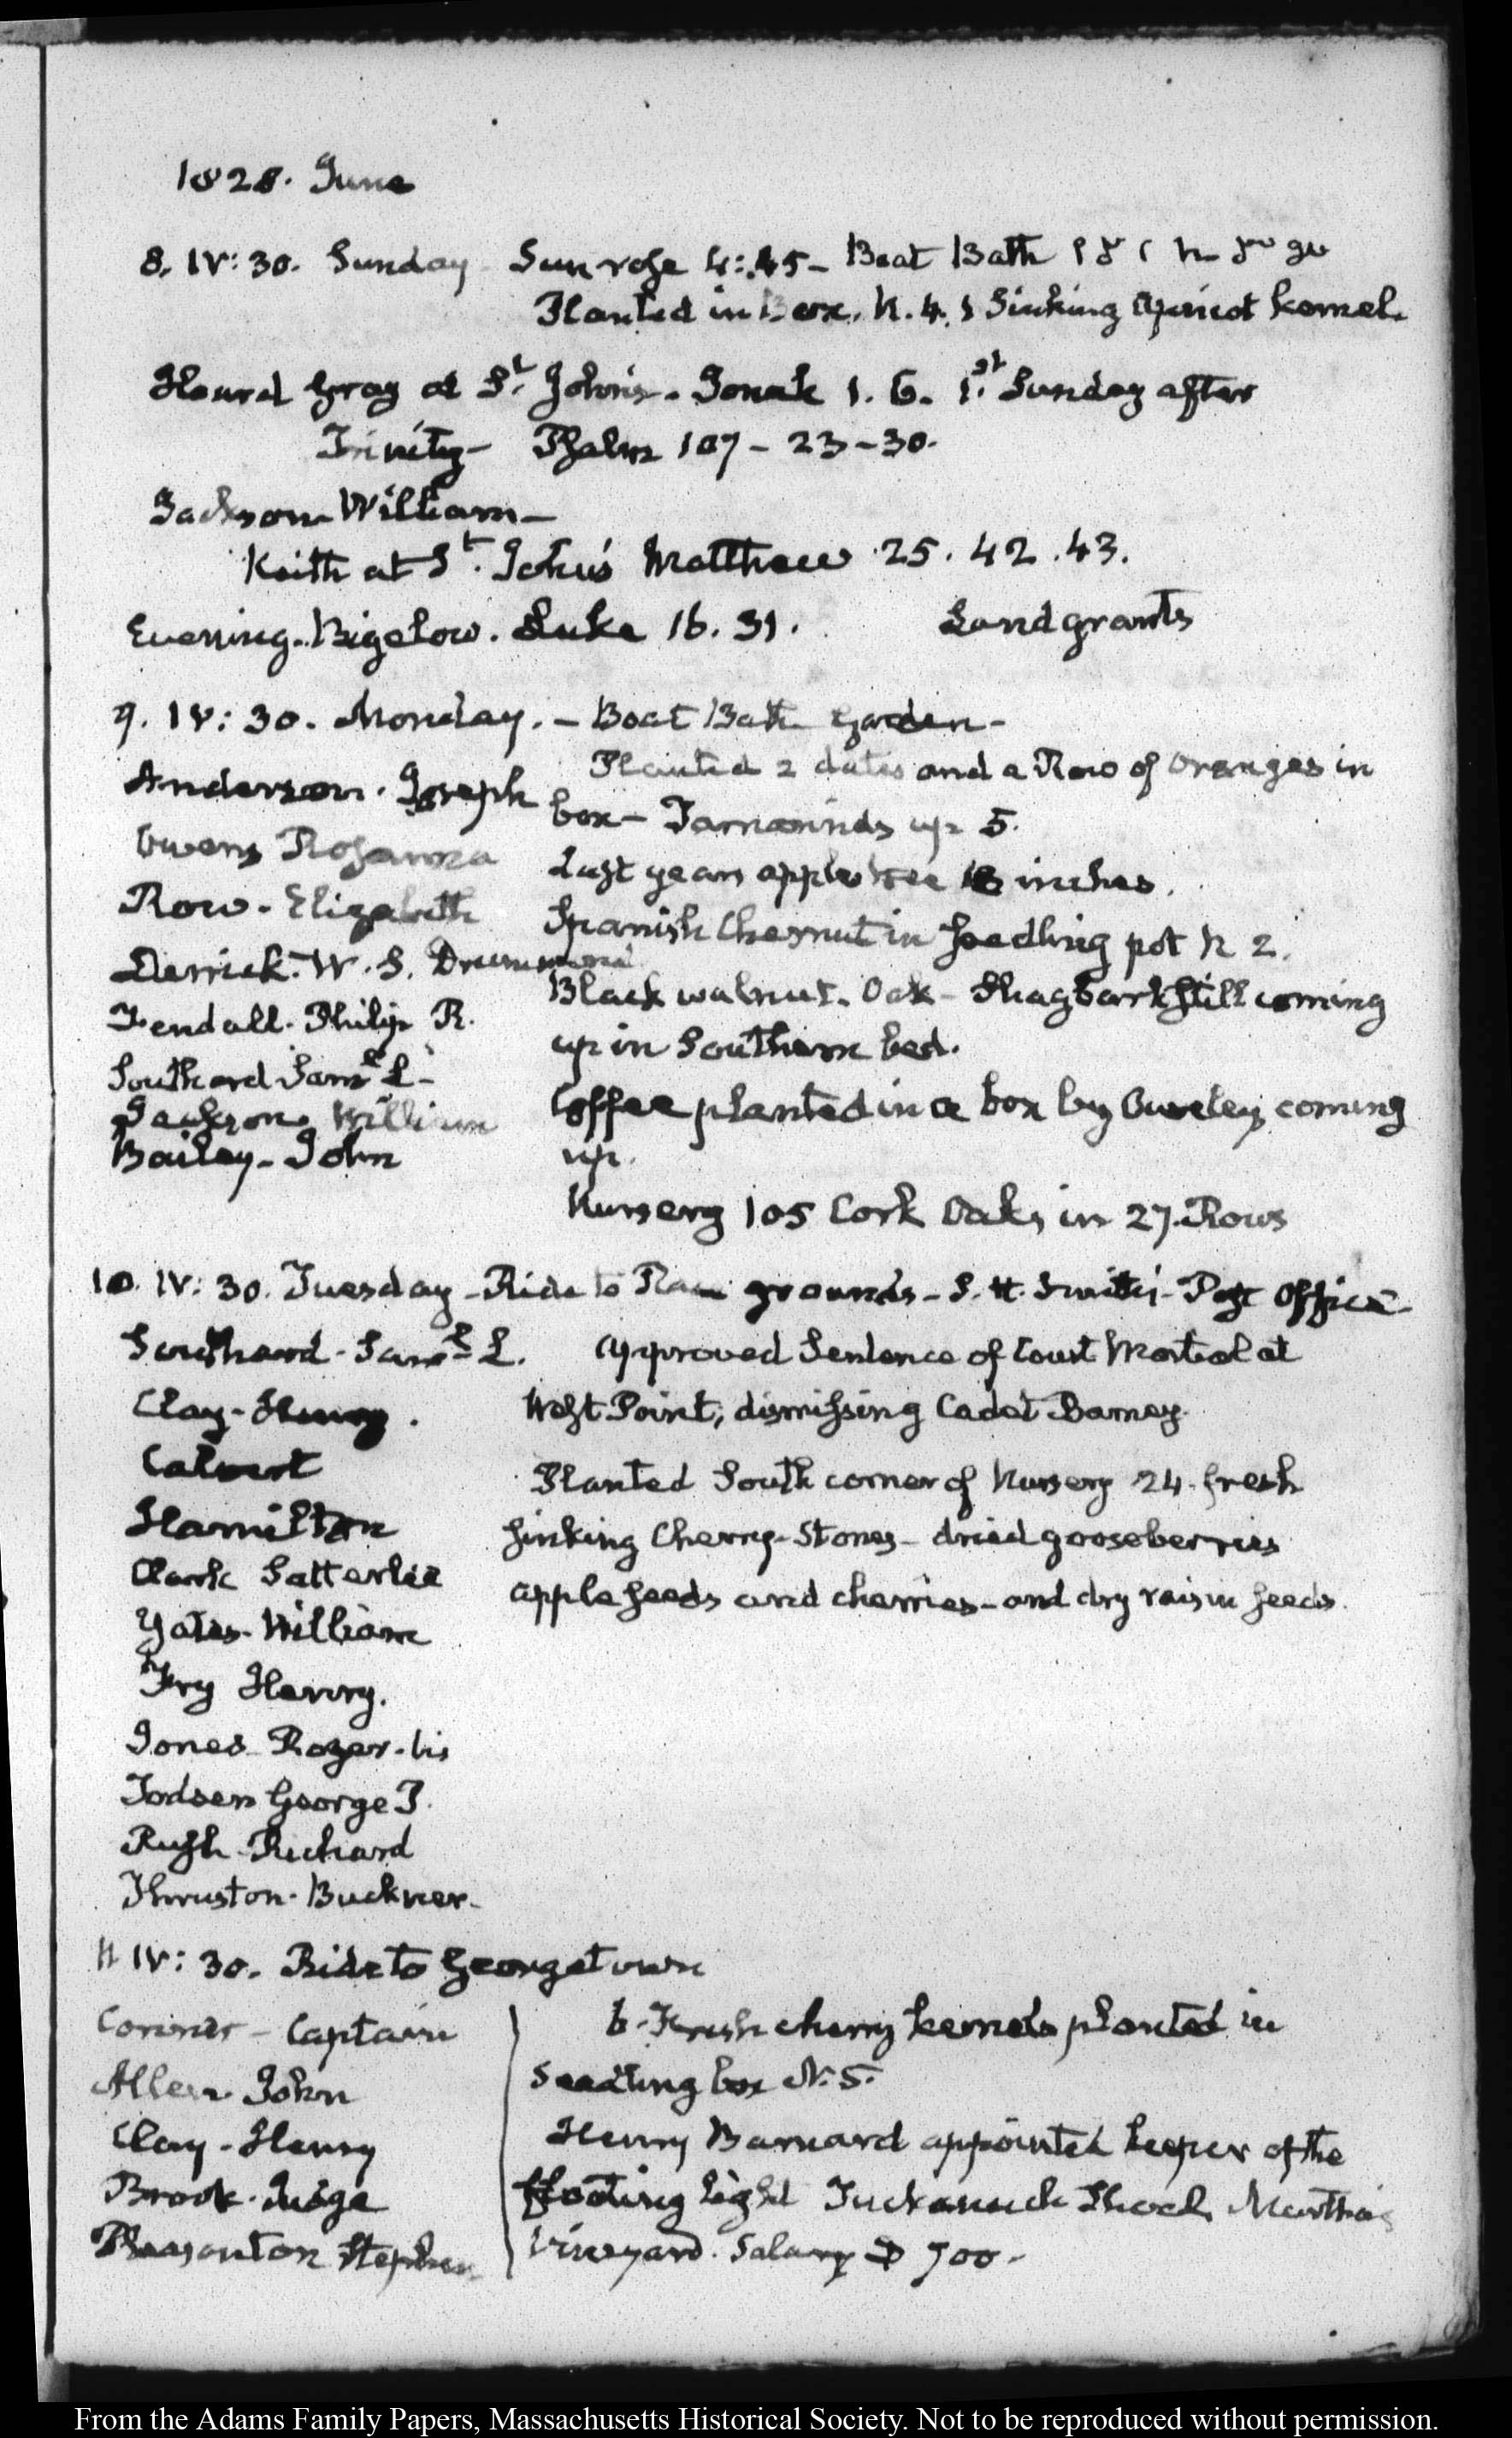 1828. June
8. IV: 30. Sunday - Sun rose 4:45 - Boat Bath
Planted in Box. N. 4. 1 Sinking Apricot kernel.
Heard Gray at St. John's. Jonah 1. 6. 1st. Sunday after
Trinity - Psalm 107 - 23 - 30.
Jackson William -
Keith at St. John's Matthew 25. 42. 43.
Evening. Bigelow. Luke 16. 31. Land grants
9. IV: 30. Monday. - Boat Bath Garden -
Anderson. Joseph
Owens Rosanna
Row - Elizabeth
Derrick. W. S. Drummond
Fendall. Philip R.
Southard Saml L -
Jackson William
Bailey - John
Planted 2 dates and a Row of Oranges in
box - Tamarinds up 5.
Last years apple tree 18 inches.
Spanish Chesnut in seedling pot N 2.
Black walnut. Oak - Shagbark still coming
up in Southern bed.
Coffee planted in a box by Ouseley coming
up.
Nursery 105 Cork Oaks in 27. Rows
10. IV: 30. Tuesday - Ride to Race grounds - S. H. Smith's - Post Office
Southard - Saml L.
Clay - Henry.
Calvert
Hamilton
Clark Satterlee
Yates - William
Fry Henry.
Jones Roger - bis
Todsen George P.
Rush - Richard
Thruston - Buckner -
Approved Sentence of Court Martial at
West Point, dismissing Cadet Barney.
Planted South corner of Nursery 24. fresh
sinking Cherry - Stones - dried gooseberries
apple seeds and cherries - and dry raisin seeds.
11 IV: 30. Ride to Georgetown
Conner - Captain
Allen John
Clay - Henry
Brook - Judge
Pleasonton Stephen
6 - Fresh cherry kernels planted in
seedling box N. 5.
Henry Barnard appointed keeper of the
floating light Tuckanuck Shoal, Martha's
Vineyard. Salary D 700 -
From the Adams Family Papers, Massachusetts Historical Society. Not to be reproduced without permission.